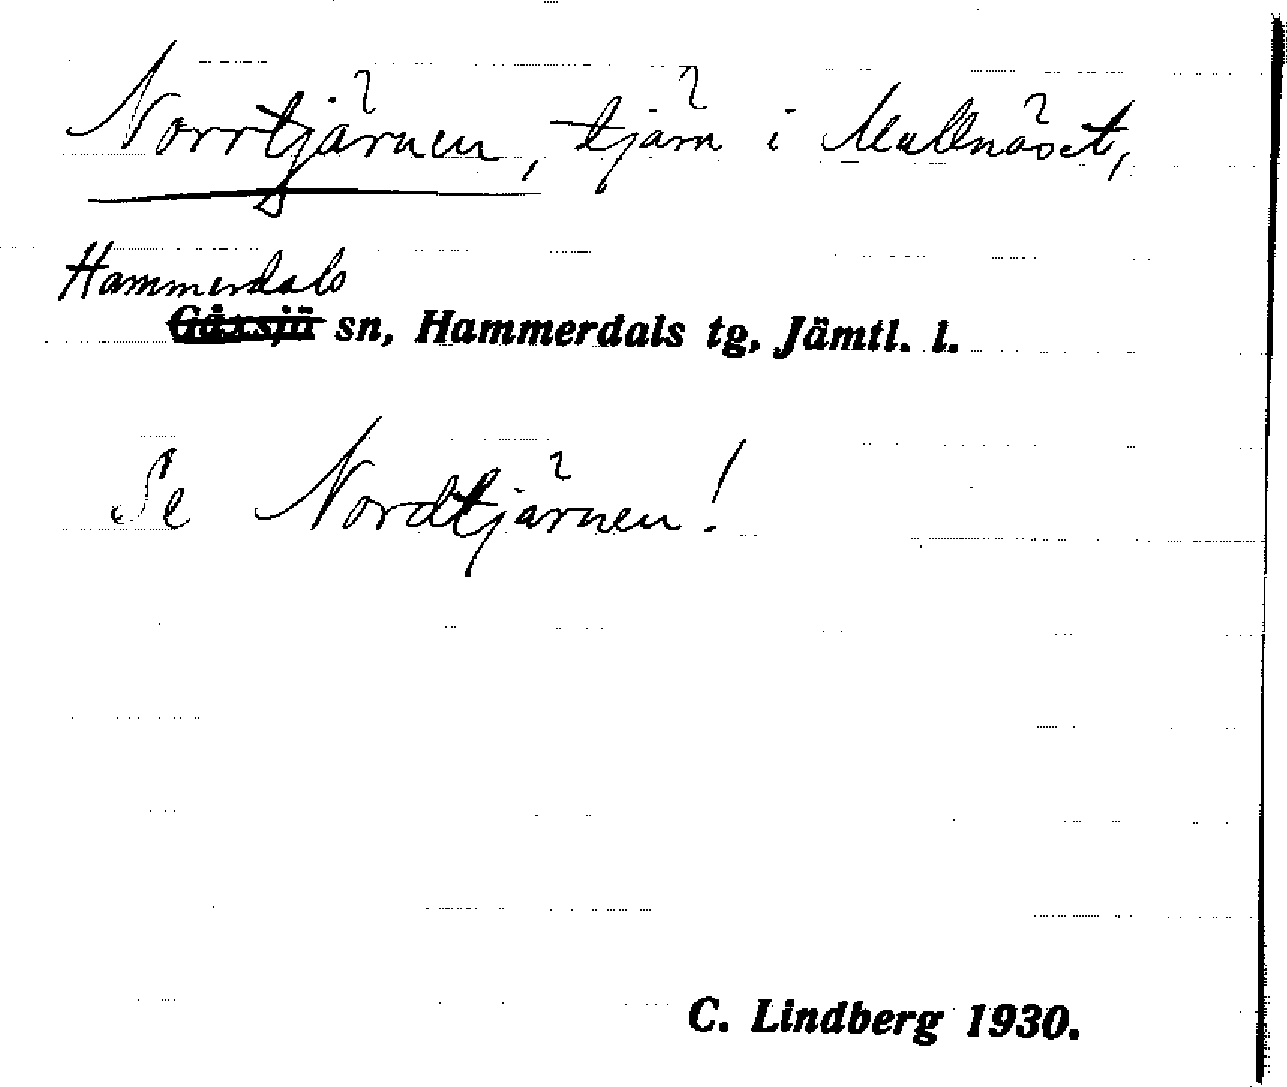 Norrtjärnen, tjärn i Mullnäset,
Hammerdals
Gåxsjö sn, Hammerdals tg, Jämtl. l.
Se Nordtjärnen!
C. Lindberg 1930.